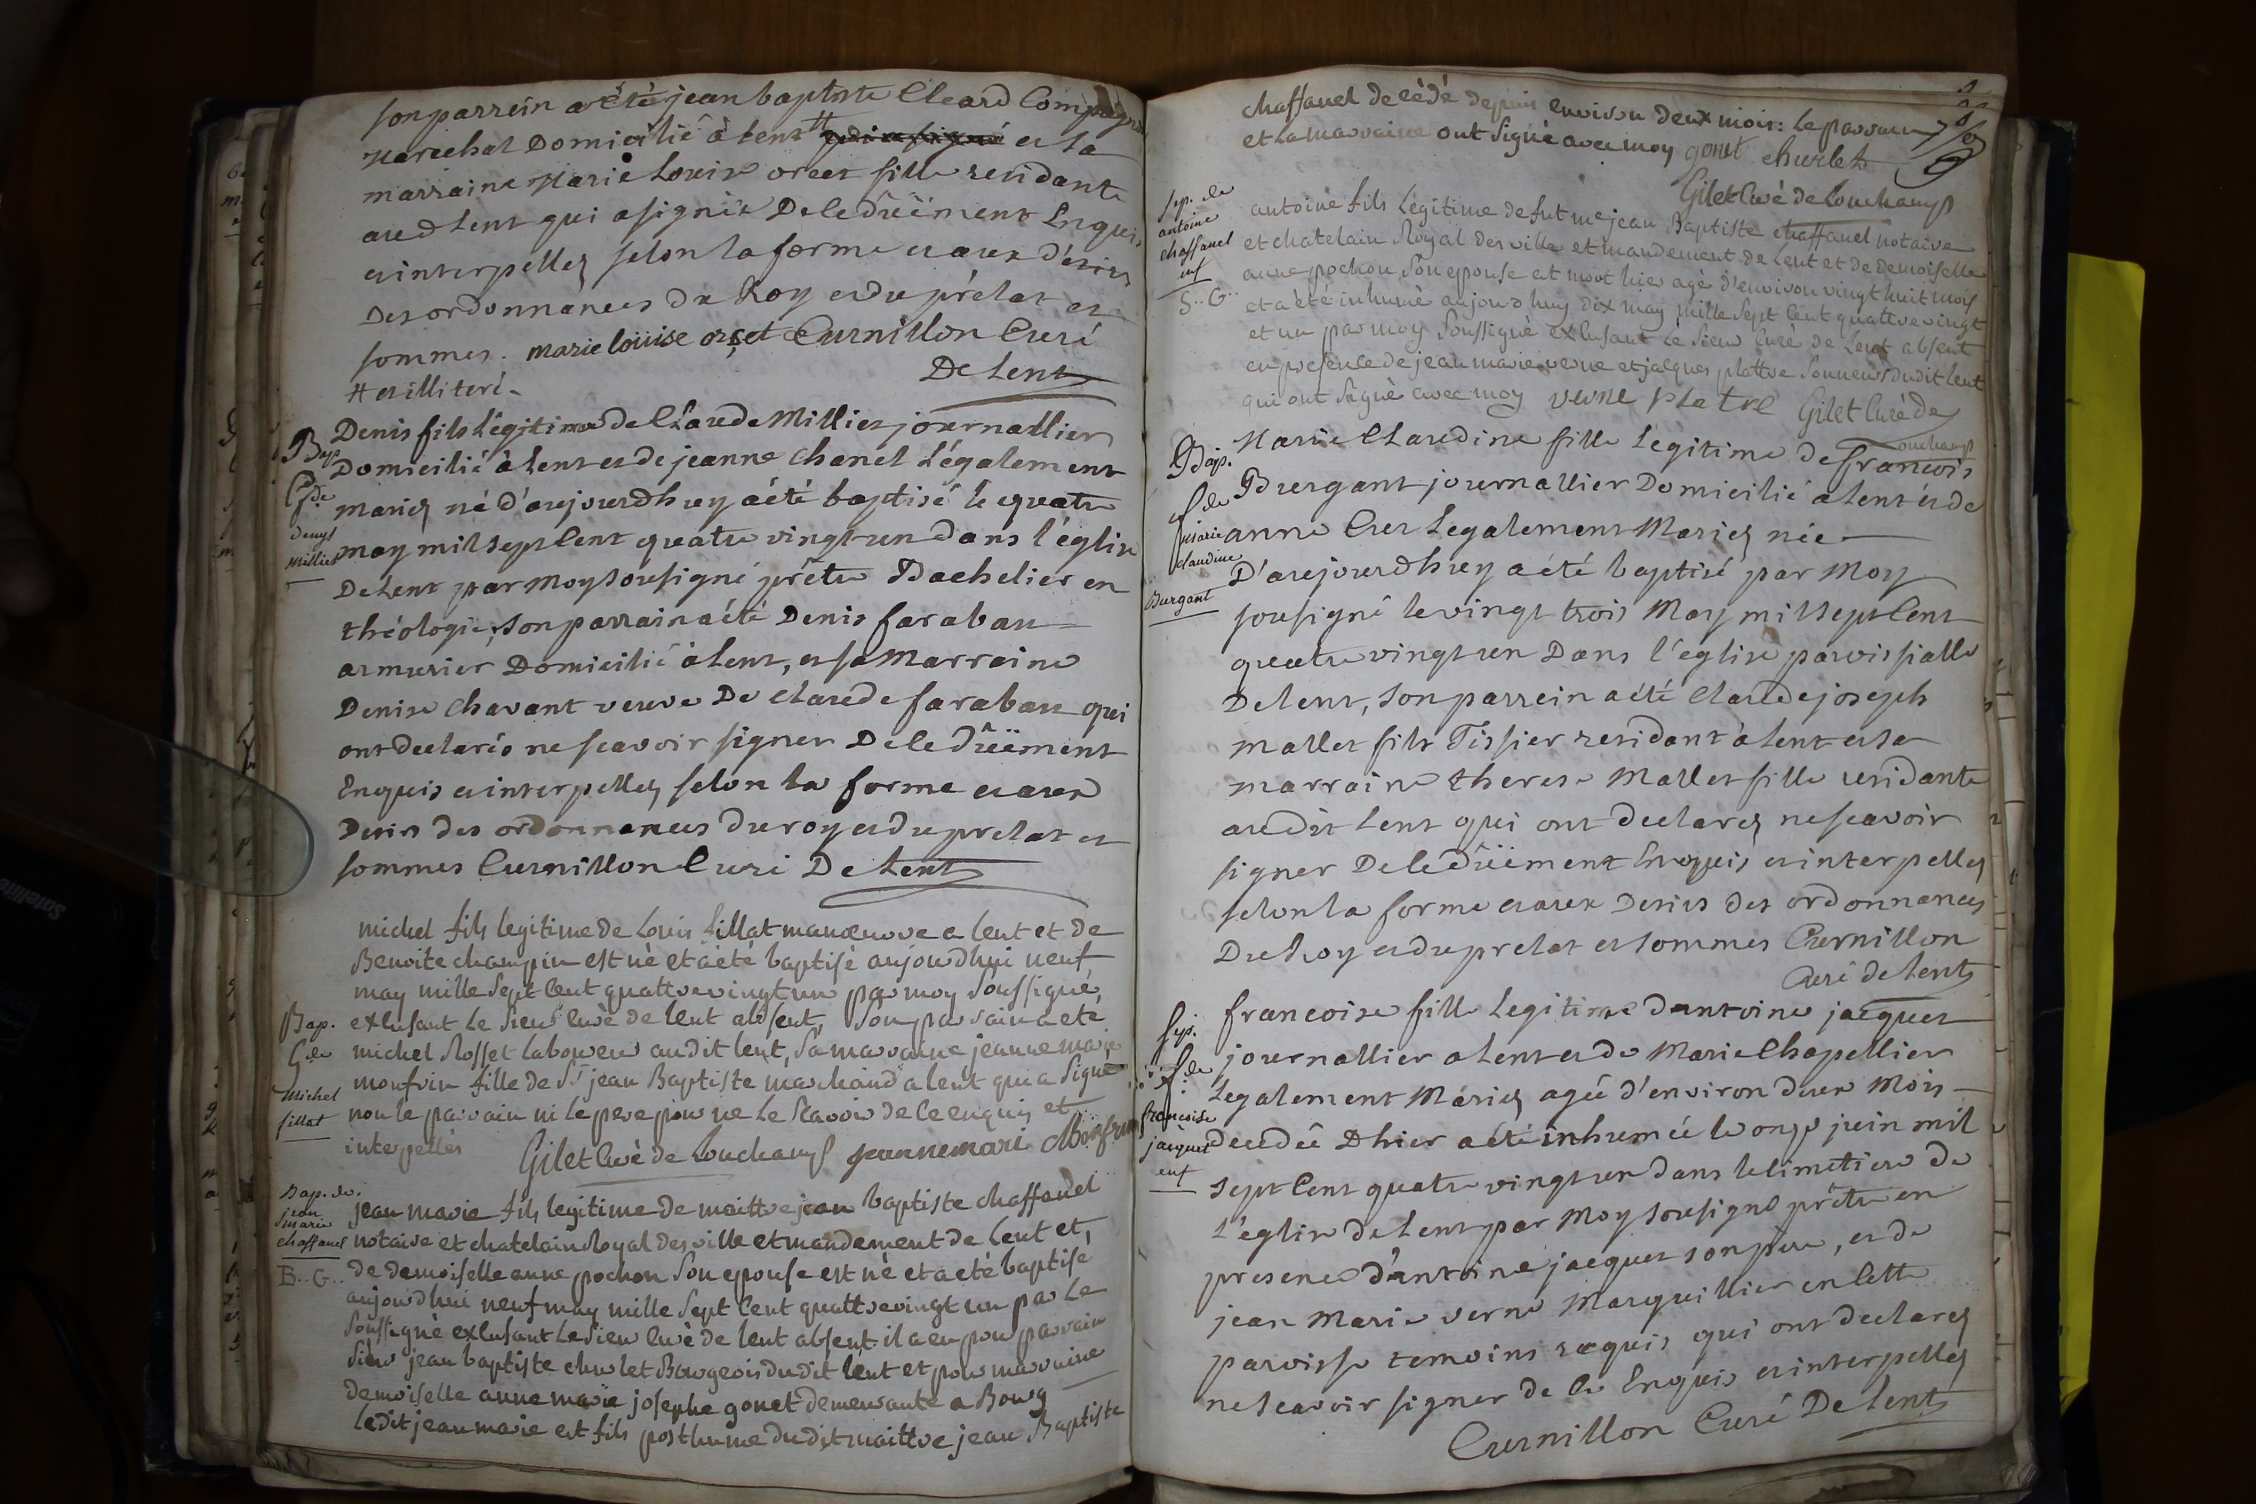 son parrein a été jean baptiste Cleard Compagnon
Marechal Domicilié à Lent # et la
marraine Marie Louise orcet fille residante
aud Lent qui a signée De le dûëment Enquis
et interpellez selon la forme et aux désirs
Des ordonnances du Roy et du prélat et
sommes. marie loüise orset Curnillon Curé
De Lent
# et illiteré
Denis fils Légitime de Claude Millier journallier
Domicilié à Lent et de jeanne Chanel Légalement
mariez né d'aujourdhuy à été baptisé le quatre
may mil sept Cent quatre vingt un dans l'église
De Lent par Moy sousigné prêtre Bachelier en
théologie, son parrain a été Denis faraban
armurier Domicilié à Lent, et sa Marraine
Denise Chavant veuve De Claude faraban qui
ont declarés ne scavoir signer De le dûëment
Enquis et interpellez selon la forme et aux
Desirs des ordonnances du roy et du prelat et
sommes Curnillon Curé De Lent
Bap.
G. de
denys
Millier
michel fils legitime de Louis fillat manœuvre a lent et de
Benoite champin est né et a été baptisé aujourdhui neuf
may mille sept cent quattre vingt un par moy soussigné,
exlusant le sieur curé de lent absent, son parrain a eté
michel Rosset laboureur audit lent, sa marraine jeanne marie
monfrin fille de Sr jean Baptiste marchand a lent qui a signé
non le parrain ni le pere pour ne le scavoir de ce enquis et
interpellés Gilet Curé de Louchamp jeannemarie Monfrin
Bap.
G. de
Michel
fillat
Bap. de
jean
marie
chaffanel
B.. G..
jean marie fils legitime de maittre jean baptiste chaffanel
notaire et chatelain Royal des ville et mandement de Lent et,
de demoiselle anne pochon son epouse est né et a eté baptisé
aujourdhui neuf may mille sept cent quattre vingt un par le
soussigné exlusant le sieur curé de lent absent. il a eu pour parrain
sieur jean baptiste churlet Bourgeois dudit lent et pour marraine
demoiselle anne marie josephe gonet demeurante a Bourg
ledit jean marie est fils posthume dudit maittre jean Baptiste
chaffanel decédé depuis environ deux mois: le parrain
et la marraine ont signé avec moy gonet churlet
Gilet Curé de Louchamp
Sep. de
antoine
chaffanel
enf
S.. G..
antoine fils légitime de fut me jean Baptiste chaffanel notaire
et chatelain Royal des ville et mandement de Lent et de demoiselle
anne pochon son epouse est mort hier agé d'environ vingt huit mois
et a été inhumé aujourdhuy dix may mille sept cent quattre vingt
et un par moy soussigné exlusant le sieur curé de lent absent
en presence de jean marie verne et jacques plattre sonneurs dudit lent
qui ont signé avec moy verne platre Gilet Curé de
Louchamp
Bap.
f. de
Marie
claudine
Burgant
Marie Claudine fille legitime de françois
Burgant journallier Domicilié a Lent et de
anne Cur Legalement Mariez née
D'aujourdhuy a été baptisé par Moy
sousigné le vingt trois May mil sept Cent
quatre vingt un Dans l'église paroissialle
De Lent, son parrein a été Claude joseph
mallet fils Tissier residant à Lent et sa
marraine therese Mallet fille residante
audit Lent qui ont declarez ne scavoir
signer De le dûëment Enquis et interpellez
selon la forme et aux Desirs des ordonnances
Du Roy et du prelat et sommes Curnillon
Curé de Lent
Sep.
f. de
françoise
jacquet
enf
francoise fille legitime d'antoine jacquet
journallier a Lent et de Marie Chapellier
Legalement Máriez agée d'environ deux Mois
decedée D hier a été inhumée le onze juin mil
sept Cent quatre vingt un dans le Cimetiere de
L'église de Lent par Moy sousigné prêtre en
presence d'antoine jacquet son père, et de
jean Marie verne Marguillier en Cette
paroisse temoins requis qui ont declarez
ne scavoir signer de Ce Enquis et interpellez
Curnillon Curé De Lent